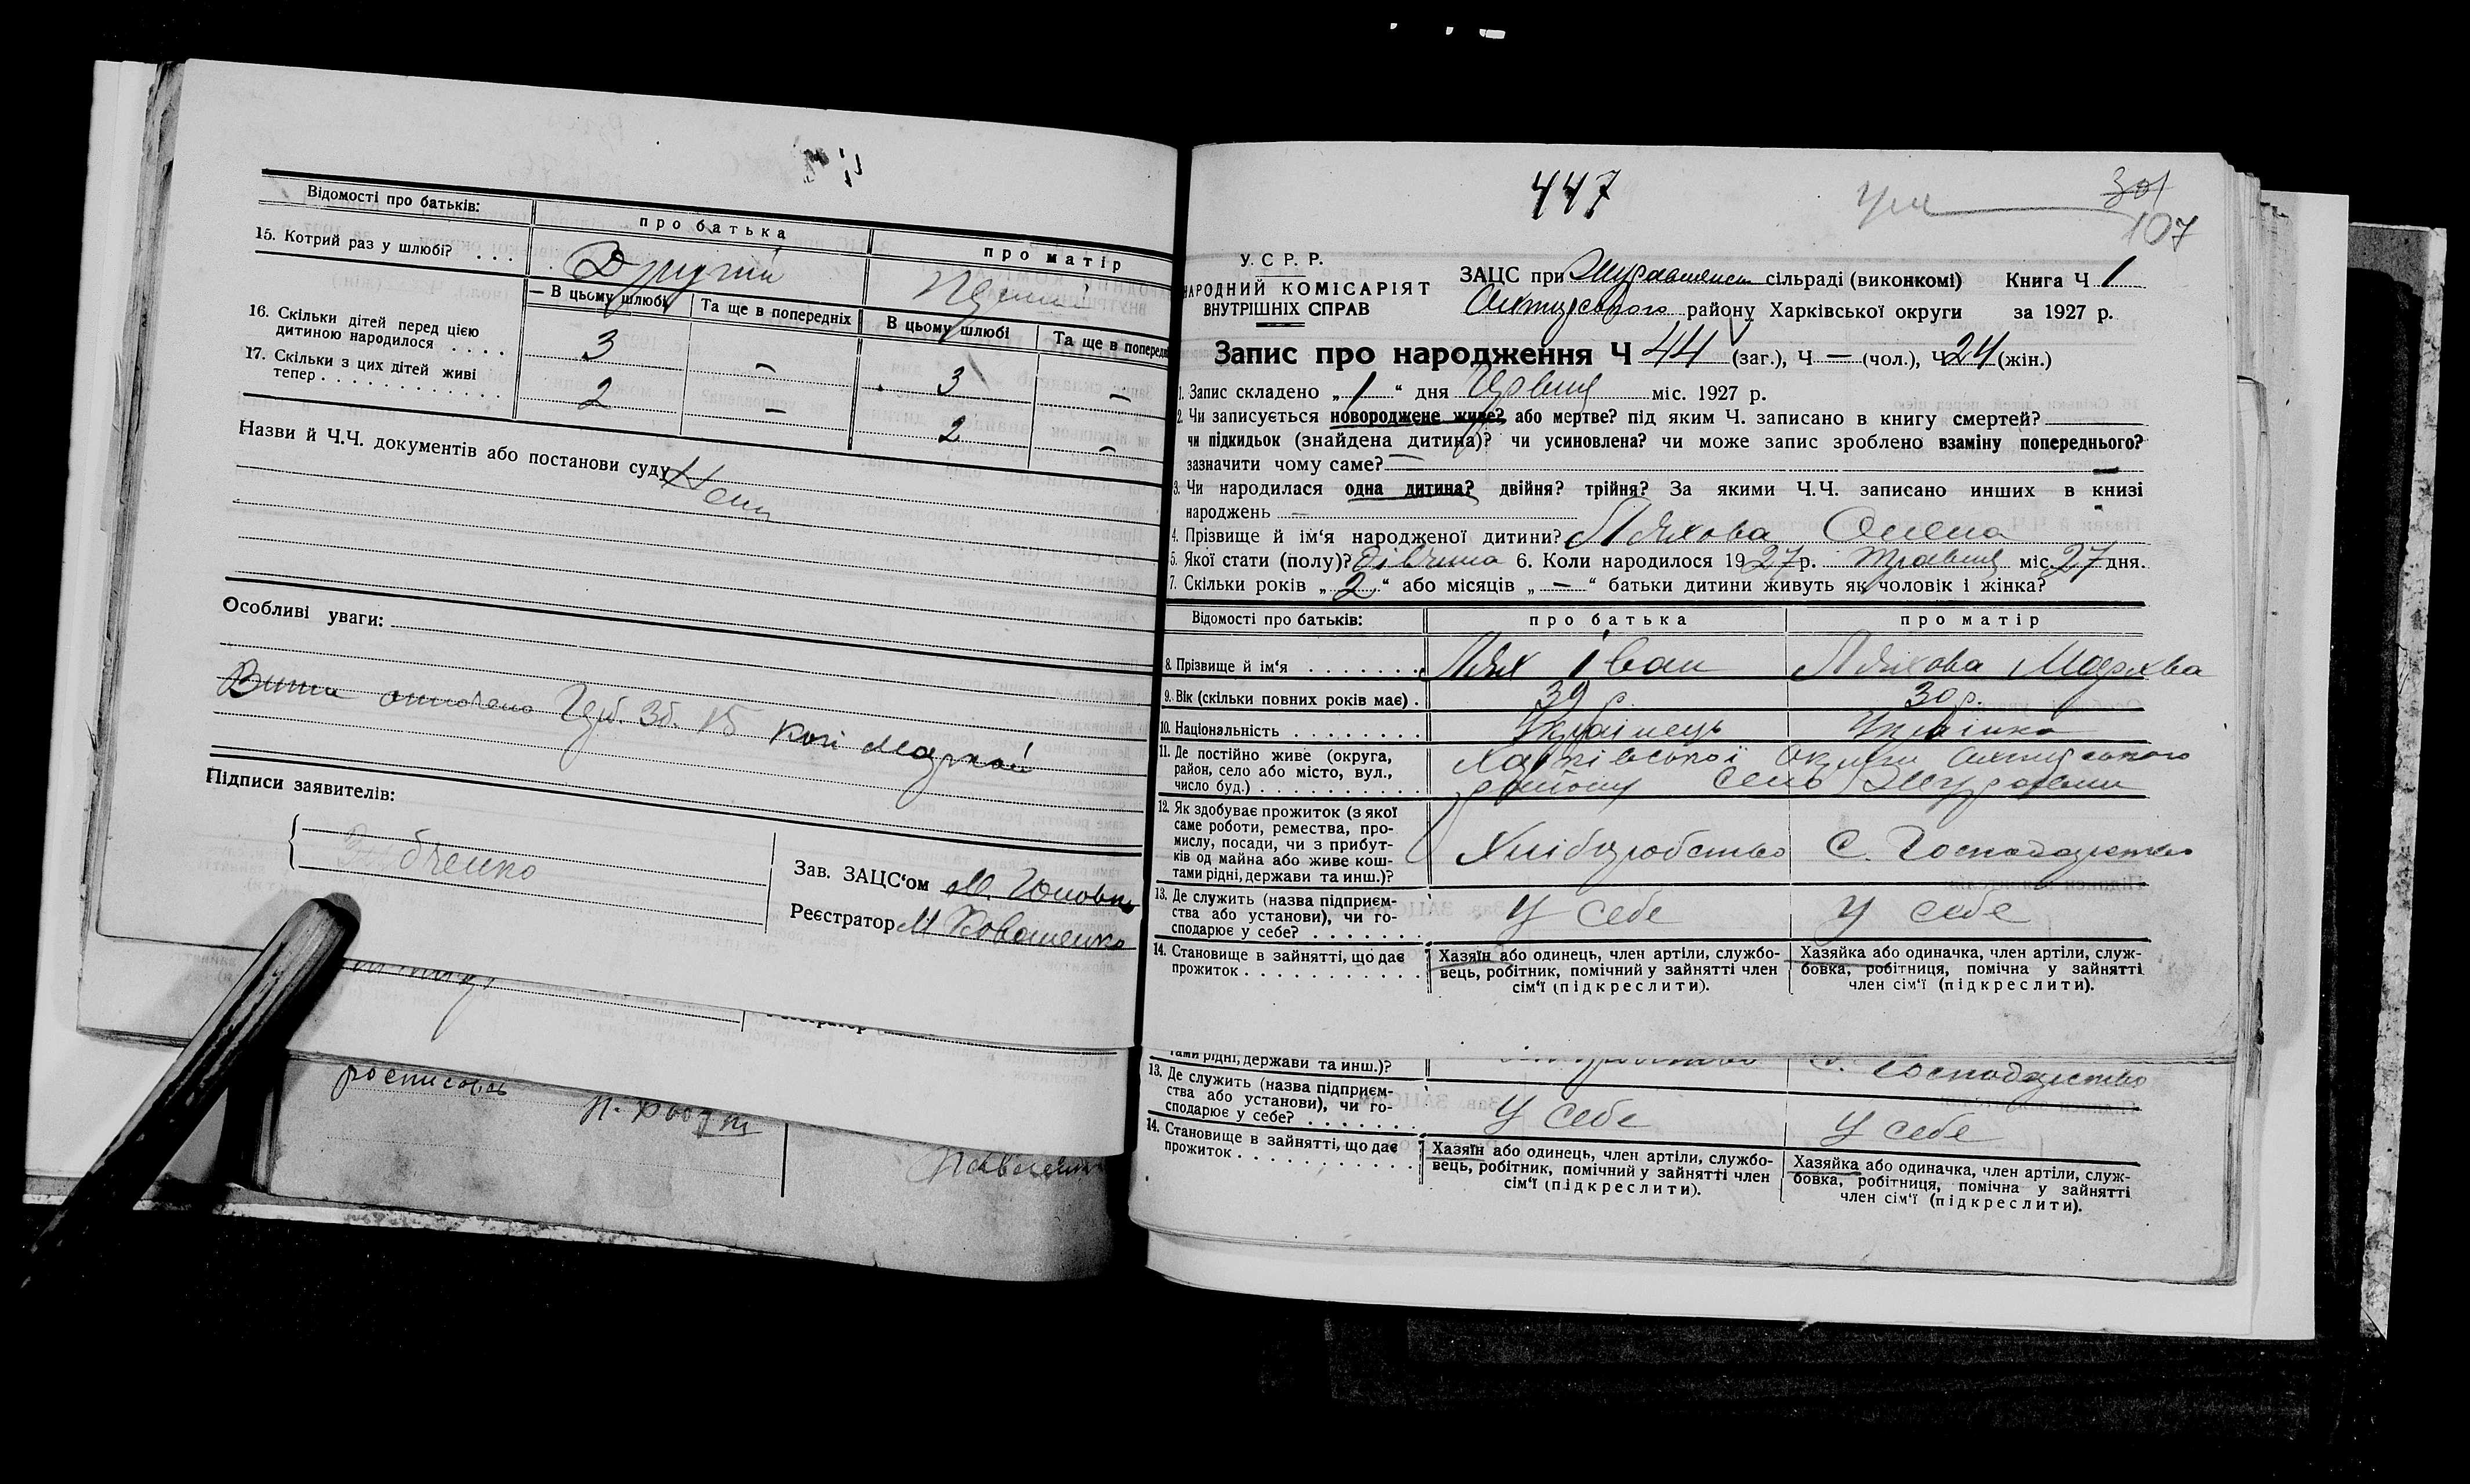 Відомості про батьків:
про батька
про матір
15. Котрий раз у шлюбі? . . .
Другий
В цьому шлюбі
Та ще в попередніх
В цьому шлюбі
Та ще в поперед
16. Скільки дітей перед цією
дитиною народилося . . . .
3 — 3 —
17. Скільки з цих дітей живі
тепер . . . . . . . . . . .
2 — 2 —
Назви й Ч.Ч. документів або постанови суду
Особливі уваги:
коп маркой
Підписи заявителів:
Зав. ЗАЦС‘ом
Реєстратор М
росписовсь
447
301
107
У.С.Р.Р.
НАРОДНИЙ КОМІСАРІЯТ
ВНУТРІШНІХ СПРАВ
ЗАЦС при сільраді (виконкомі) Книга Ч 1
району Харківської округи за 1927 р.
Запис про народження Ч 44 (заг.), Ч — (чол.), Ч 24 (жін.)
1. Запис складено „ 1 “ дня Червня міс. 1927 р.
2. Чи записується новороджене живе? або мертве? під яким Ч. записано в книгу смертей?
чи підкидьок (знайдена дитина)? чи усиновлена? чи може запис зроблено взаміну попереднього?
зазначити чому саме? —
3. Чи народилася одна дитина? двійня? трійня? За якими Ч.Ч. записано инших в книзі
народжень —
4. Прізвище й ім‘я народженої дитини? Ляхова Олена
5. Якої стати (полу)? дівчина 6. Коли народилося 1927 р. травня міс. 27 дня.
7. Скільки років „ 2 “ або місяців „ — “ батьки дитини живуть як чоловік і жінка?
Відомості про батьків:
про батька
про матір
8. Прізвище й ім‘я . . . . . . . Лях Іван Ляхова
9. Вік (скільки повних років має) . 39 р. 30 р.
10. Національність . . . . . . . . Українець Українка
11. Де постійно живе (округа,
район, село або місто, вул.,
число буд.) . . . . . . . . . . .
Харківської округи
району село
12. Як здобуває прожиток (з якої
саме роботи, ремества, про-
мислу, посади, чи з прибут-
ків од майна або живе кош-
тами рідні, держави та инш.)?
Хліборобство С. Господарство
13. Де служить (назва підприєм-
ства або установи), чи го-
сподарює у себе? . . . . . . .
У себе У себе
14. Становище в зайнятті, що дає
прожиток . . . . . . . . . . . .
Хазяїн або одинець, член артіли, службо-
вець, робітник, помічний у зайнятті член
сім‘ї (підкреслити).
Хазяйка або одиначка, член артіли, служ-
бовка, робітниця, помічна у зайнятті
член сім‘ї (підкреслити).
тами рідні, держави та инш.)?
Господарство
13. Де служить (назва підприєм-
ства або установи), чи го-
сподарює у себе? . . . . . . .
У себе У себе
14. Становище в зайнятті, що дає
прожиток . . . . . . . . . . . .
Хазяїн або одинець, член артіли, службо-
вець, робітник, помічний у зайнятті член
сім‘ї (підкреслити).
Хазяйка або одиначка, член артіли, служ-
бовка, робітниця, помічна у зайнятті
член сім‘ї (підкреслити).